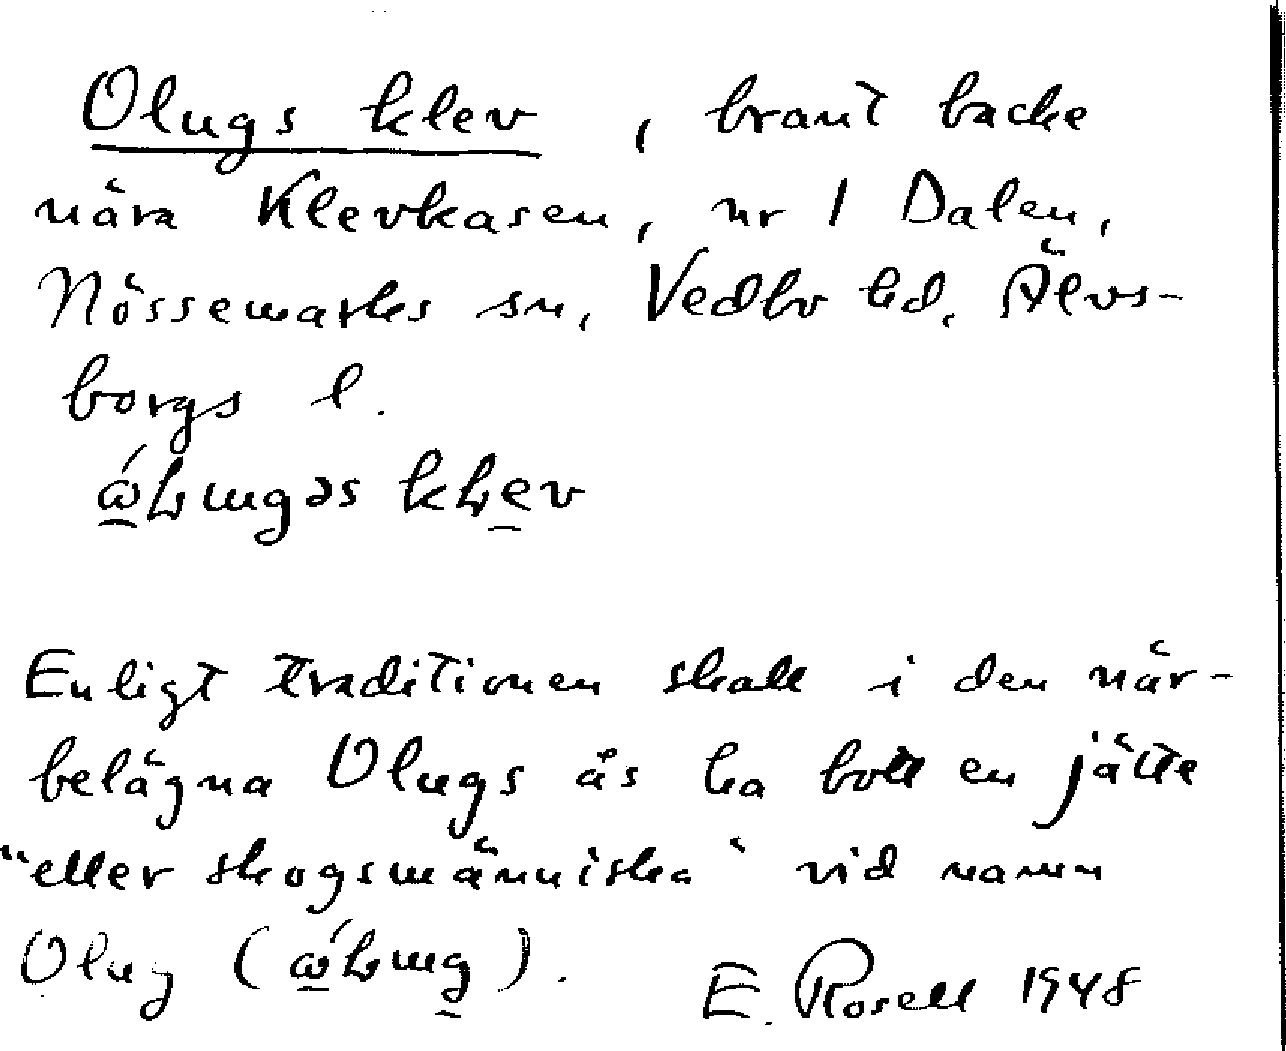 Olugs klev, brant backe
nära Klevkasen, nr 1 Dalen,
Nössemarks sn, Vedbo hd, Älvs-
borgs l.
klev
Enligt traditionen skall i den när-
belägna Olugs ås ha bott en jätte
"eller skogsmänniska" vid namn
Olug ( ).
E. Rosell 1948